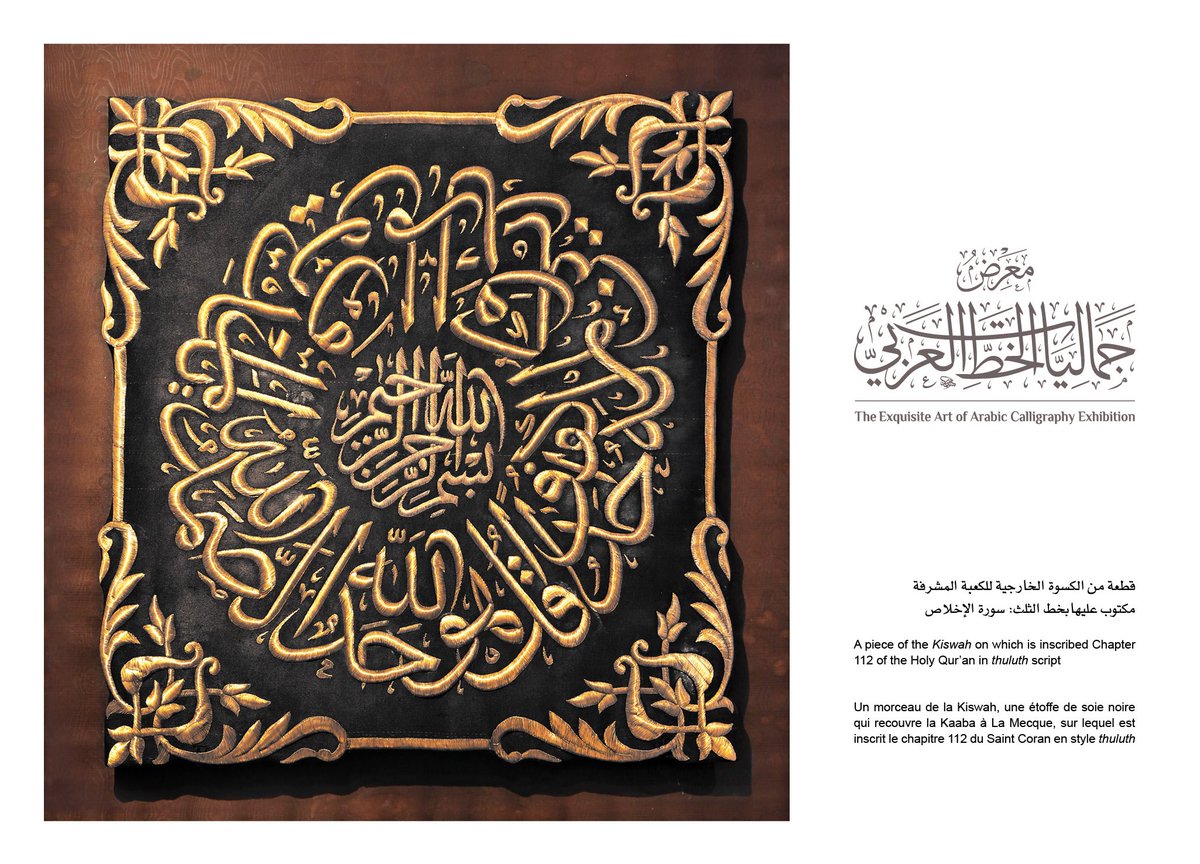 بسم الله الرحمن الرحيم
قل هو الله أحد الله الصمد لم يلد ولم يولد ولم يكن له كفوا أحد
معرض
جماليات الخط العربي
The Exquisite Art of Arabic Calligraphy Exhibition
قطعة من الكسوة الخارجية للكعبة المشرفة
مكتوب عليها بخط الثلث: سورة الإخلاص
A piece of the Kiswah on which is inscribed Chapter
112 of the Holy Qur'an in thuluth script
Un morceau de la Kiswah, une étoffe de soie noire
qui recouvre la Kaaba à La Mecque, sur lequel est
inscrit le chapitre 112 du Saint Coran en style thuluth